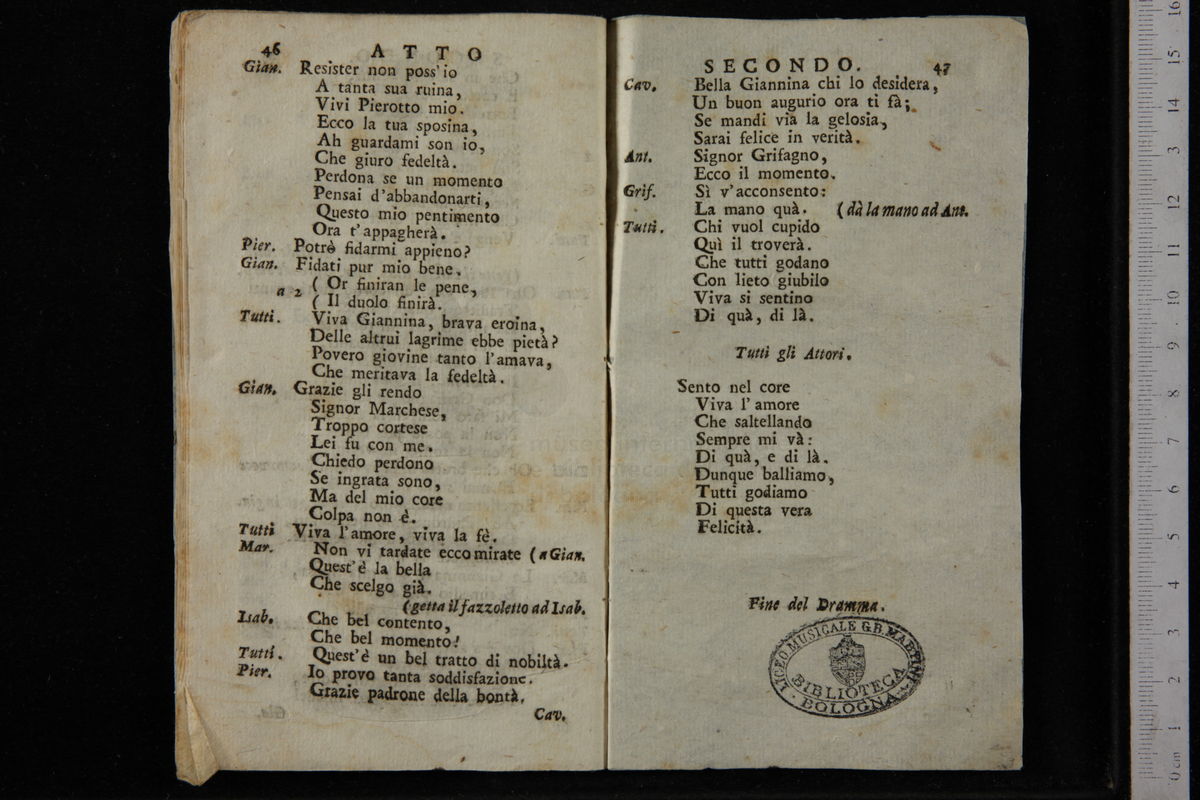 46 ATTO
Gian. Resister non poss'io
A tanta sua ruina,
Vivi Pierotto mio.
Ecco la tua sposina,
Ah guardami son io,
Che giuro fedeltà.
Perdona se un momento
Pensai d'abbandonarti,
Questo mio pentimento
Ora t'appagherà.
Pier. Potrò fidarmi appieno?
Gian. Fidati pur mio bene.
a 2 ( Or finiran le pene,
( Il duolo finirà.
Tutti. Viva Giannina, brava eroina,
Delle altrui lagrime ebbe pietà?
Povero giovine tanto l'amava,
Che meritava la fedeltà.
Gian. Grazie gli rendo
Signor Marchese,
Troppo cortese
Lei fu con me.
Chiedo perdono
Se ingrata sono,
Ma del mio core
Colpa non è.
Tutti Viva l'amore, viva la fè.
Mar. Non vi tardate ecco mirate (a Gian.
Quest'è la bella
Che scelgo già.
(getta il fazzoletto ad Isab.
Isab. Che bel contento,
Che bel momento!
Tutti. Quest'è un bel tratto di nobiltà.
Pier. Io provo tanta soddisfazione.
Grazie padrone della bontà.
Cav.
SECONDO. 47
Cav. Bella Giannina chi lo desidera,
Un buon augurio ora ti fà;
Se mandi via la gelosia,
Sarai felice in verità.
Ant. Signor Grifagno,
Ecco il momento.
Grif. Sì v'acconsento:
La mano quà. (dà la mano ad Ant.
Tutti. Chi vuol cupido
Quì il troverà.
Che tutti godano
Con lieto giubilo
Viva si sentino
Di quà, di là.
Tutti gli Attori.
Sento nel core
Viva l'amore
Che saltellando
Sempre mi và:
Di quà, e di là.
Dunque balliamo,
Tutti godiamo
Di questa vera
Felicità.
Fine del Dramma.
LICEO MUSICALE G.B. MARTINI
BIBLIOTECA
BOLOGNA